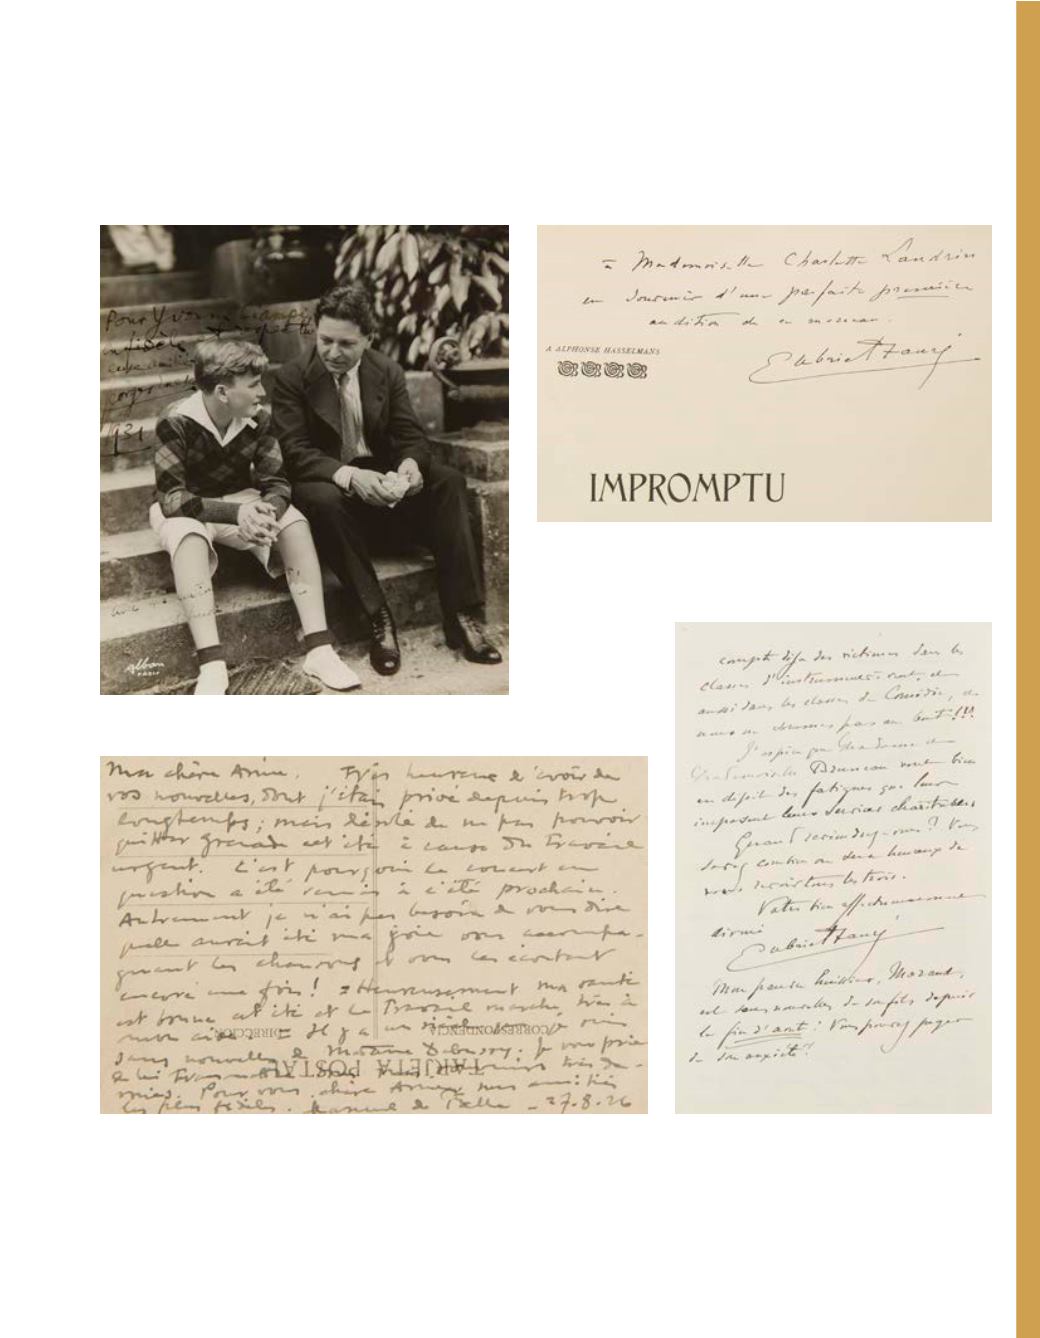 Pour Yvonne
1931
Alban
PARIS
à Mademoiselle Charlotte Landrin
en souvenir d'une parfaite première
audition de ce morceau.
Gabriel Fauré
A ALPHONSE HASSELMANS
IMPROMPTU
Ma chère Amie, Très heureux d'avoir de
vos nouvelles, dont j'étais privé depuis trop
longtemps; mais désolé de ne pas pouvoir
quitter Grenade cet été à cause du travail
urgent. C'est pourquoi le concert en
question a été remis à l'été prochain.
Autrement je n'ai pas besoin de vous dire
quelle aurait été ma joie vous accompa-
gnant les chansons et vous les écoutant
encore une fois! Heureusement ma santé
est bonne cet été et le travail marche très à
mon aise. Il y a un siècle que je suis
sans nouvelles de Madame Debussy. Je vous prie
de lui
Pour vous, chère Amie, mes amitiés
les plus fidèles. Manuel de Falla - 27.8.26
CORRESPONDENCIA
DIRECCIÓN
TARJETA POSTAL
compte déjà des victimes dans les
classes d'instruments à vent, et
aussi dans les classes de Comédie, et
nous ne sommes pas au bout!!!
J'espère que Madame et
Mademoiselle Bruneau vont bien
en dépit des fatigues que leur
imposent leurs services charitables
Quand reviendrez-vous? Vous
savez combien on sera heureux de
vous revoir tous les trois.
Votre bien affectueusement
dévoué
Gabriel Fauré
Mon pauvre huissier, Morand,
est sans nouvelles de son fils depuis
la fin d'août! Vous pouvez juger
de son anxiété!